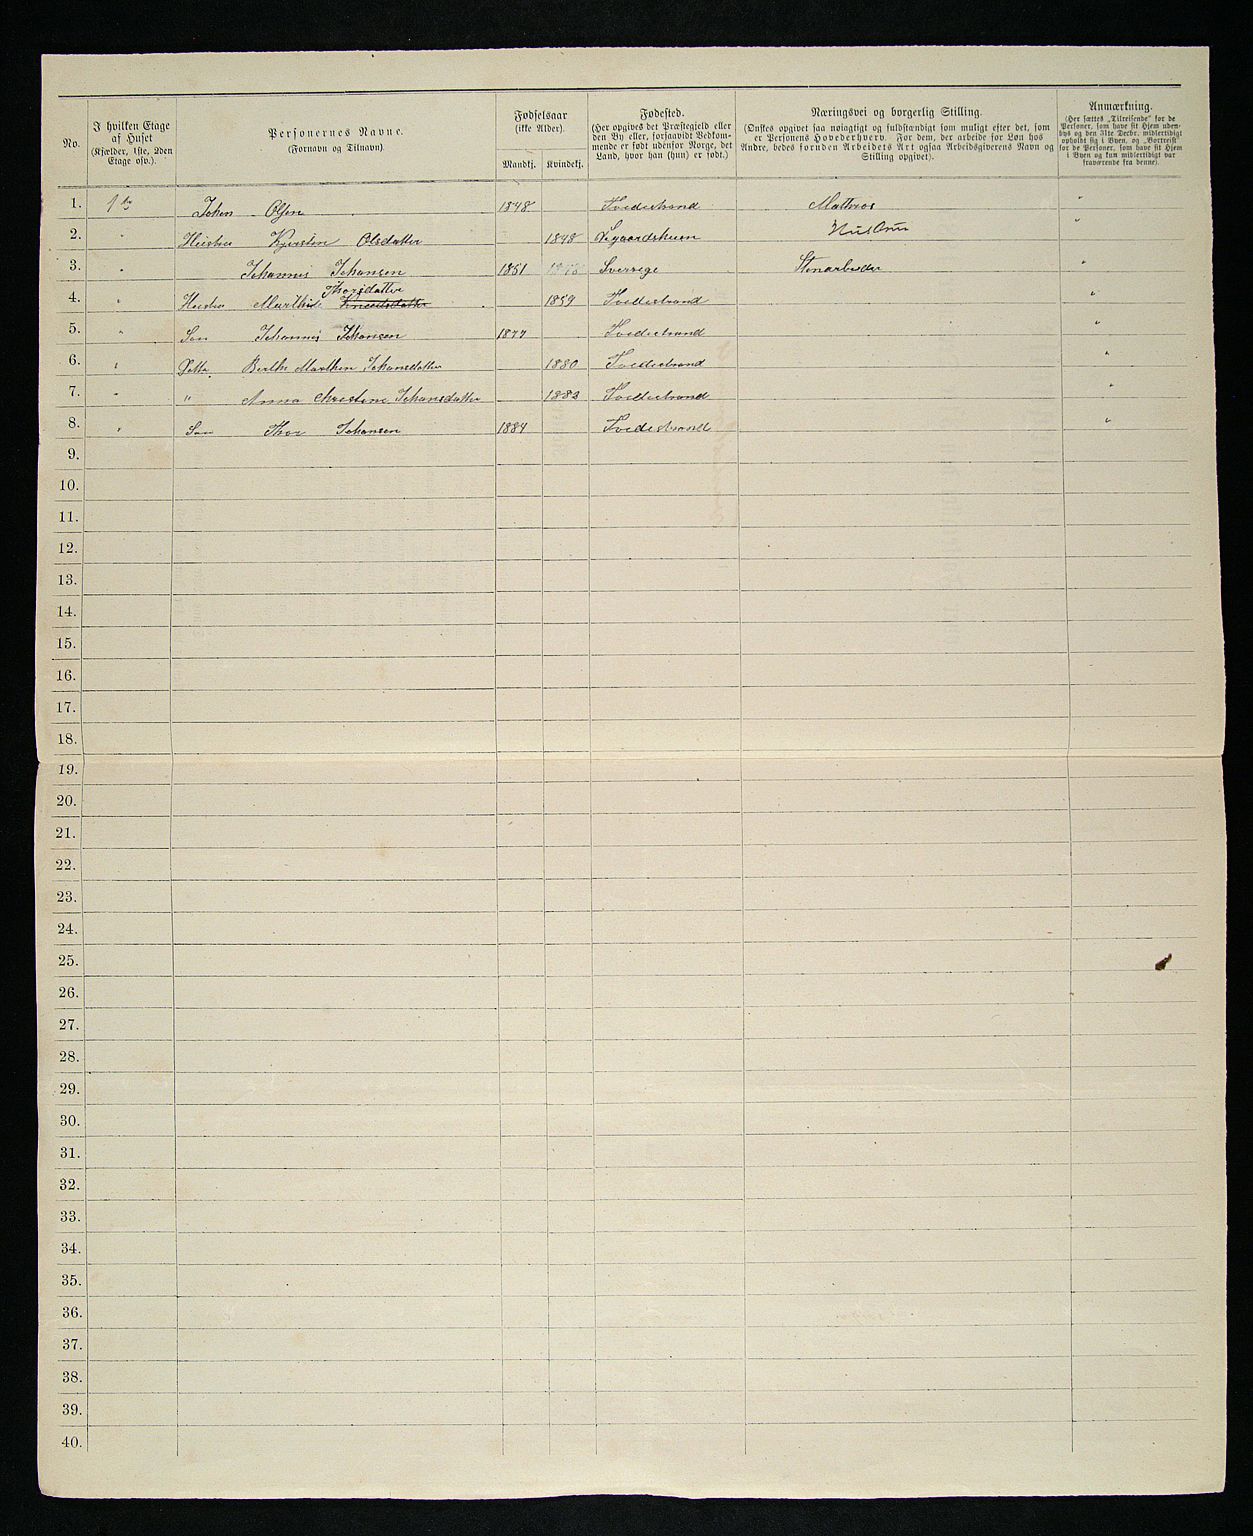 No.
I hvilken Etage
af Huset
(Kjælder, 1ste, 2den
Etage osv.).
Personernes Navne.
(Fornavn og Tilnavn).
Fødselsaar
(ikke Alder).
Mandkj. Kvindekj.
Fødested.
(Her opgives det Præstegjeld eller
den By eller, forsaavidt Vedkom-
mende er født udenfor Norge, det
Land, hvor han (hun) er født.)
Næringsvei og borgerlig Stilling.
(Ønstes opgivet saa nøiagtigt og fuldstændigt som muligt efter det, som
er Personens Hovederhverv. For dem, der arbeide for Løn hos
Andre, bedes foruden Arbeidets Art ogsaa Arbeidsgiverens Navn og
Stilling opgivet).
Anmærkning.
(Her sættes „Tilreisende“ for de
Personer, som have sit Hjem uden-
bys og den 31te Decbr. midlertidigt
opholdt sig i Byen, og „Bortreist“
for de Personer, som have sit Hjem
i Byen og kun midlertidigt var
fraværende fra denne).
1. 1ste Johan Olsen 1848 Tvedestrand Mattros "
2. " Hustru Kjersten Olsdatter 1848 Hustru "
3. " Johannes Johansen 1851 Sverrege Stenarbeider "
Thorsdatter
4. " Hustru Marthe Knudsdatter 1859 Tvedestrand "
5. " Søn Johannes Johansen 1877 Tvedestrand "
6. " Datter Berthe Marthea Johansdatter 1880 Tvedestrand "
7. " " Anna Christine Johansdatter 1882 Tvedestrand "
8. " Søn Thor Johansen 1884 Tvedestrand "
9.
10.
11.
12.
13.
14.
15.
16.
17.
18.
19.
20.
21.
22.
23.
24.
25.
26.
27.
28.
29.
30.
31.
32.
33.
34.
35.
36.
37.
38.
39.
40.